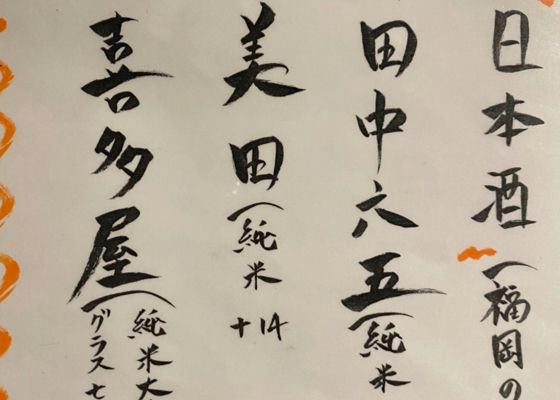 日本酒（福岡の
田中六五（純米
美田（純米
＋14
喜多屋（純米大
グラス七